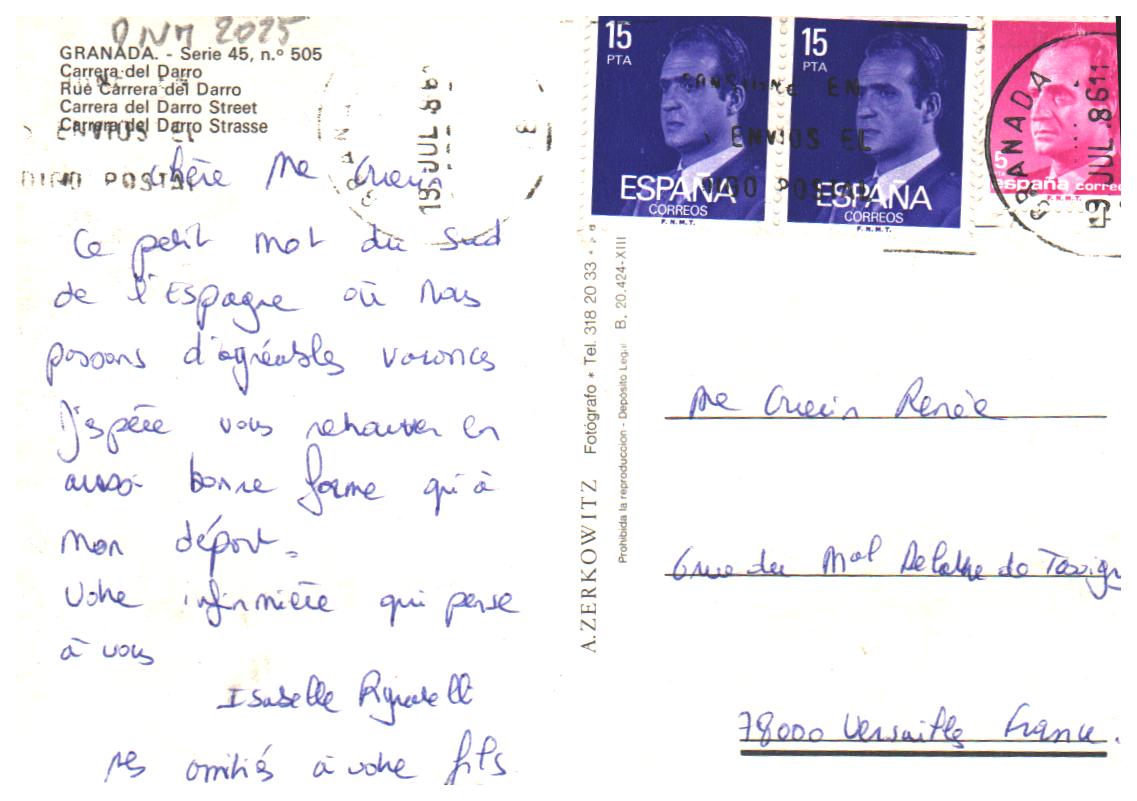 2025
GRANADA. - Serie 45, n.º 505
Carrera del Darro
Rue Carrera del Darro
Carrera del Darro Street
Carrera del Darro Strasse
ENVIOS EL
POSTAL
19 JUL 8
15
PTA
ESPAÑA
CORREOS
F.N.M.T.
15
PTA
ESPAÑA
CORREOS
F.N.M.T.
CONSIGNE EN
ENVIOS EL
POSTAL
5
PTA
españa correos
F.N.M.T.
GRANADA
19 JUL.86 11
Chère Me
Ce petit mot du Sud
de l'Espagne où nous
passons d'agréables vacances
J'espère vous retrouver en
aussi bonne forme qu'à
mon départ.
Votre infirmière qui pense
à vous
Isabelle
mes amitiés à votre fils
A. ZERKOWITZ Fotógrafo * Tel. 318 20 33
Prohibida la reproduccion - Depósito Legal B. 20.424-XIII
Me Renée
6 rue du Mal De Lattre de Tassign
78000 Versailles France.